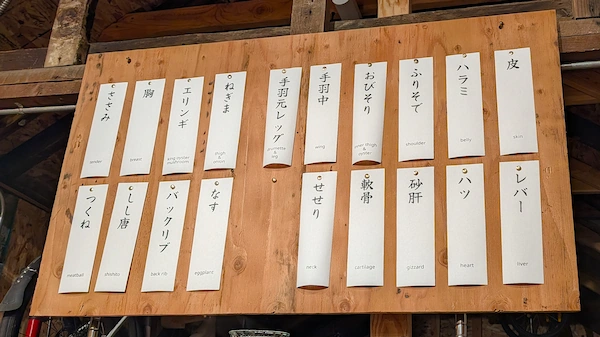 皮
skin
ハラミ
belly
ふりそで
shoulder
おびそり
inner thigh &
手羽中
wing
手羽元レッグ
&
leg
ねぎま
thigh
&
onion
エリンギ
king oyster
mushroom
胸
breast
ささみ
tender
レバー
liver
ハツ
heart
砂肝
gizzard
軟骨
cartilage
せせり
neck
なす
eggplant
バックリブ
back rib
しし唐
shishito
つくね
meatball